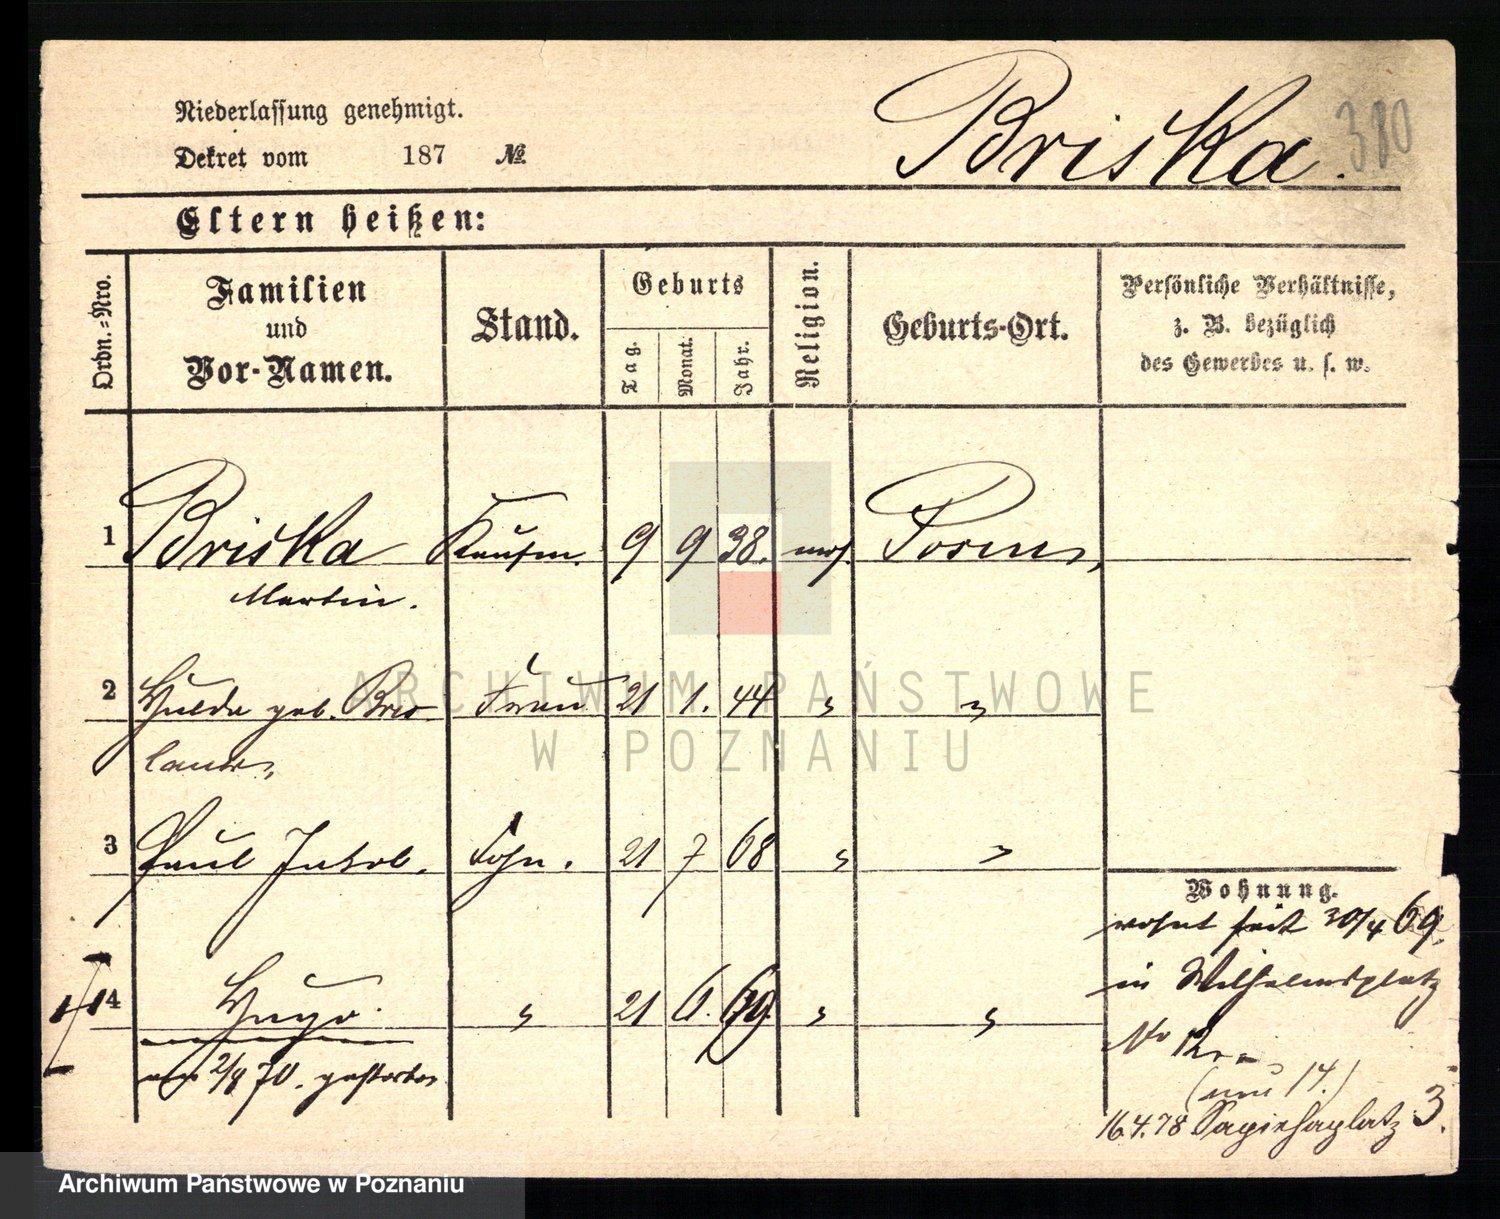 Niederlassung genehmigt.
Dekret vom 187 №
Briska.
380
Eltern heißen:
Ordn.-Nro.
Familien
und
Vor-Namen.
Stand.
Geburts
Tag.
Monat.
Jahr.
Religion.
Geburts-Ort.
Persönliche Verhältnisse,
z. B. bezüglich
des Gewerbes u. s. w.
1 Briska Kaufm. 9 9 38. mos. Posen,
Martin.
2 Hulda geb. Bres Frau 21 1. 44 " "
lauer,
3 Paul Jakob. Sohn. 21 7 68 " "
4 Hugo. " 21 6. 69 " "
2/8 70. gestorben
Wohnung.
wohnt seit 30/4 69.
in Wilhelmsplatz
No 12
(neu 14.)
16.4.78 Sapiehaplatz 3.
ARCHIWUM PAŃSTWOWE
W POZNANIU
Archiwum Państwowe w Poznaniu